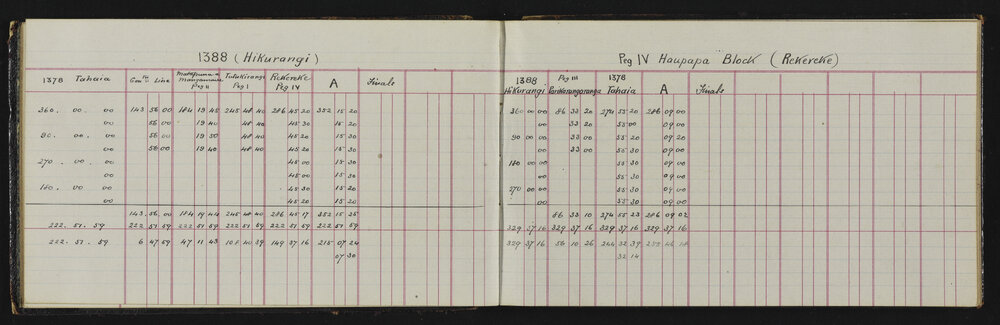 1388 (Hikurangi)
1378 Tahaia Line Tutukirangi Rekereke A Finals
Peg II Peg I Peg IV
360. 00 00 143 56 00 184 19 45 245 48 40 286 45 20 352 15 20
00 56 00 19 40 48 40 45 30 15 20
90. 00. 00 56 00 19 30 48 40 45 20 15 30
00 56 00 19 40 48 40 45 20 15 30
270 . 00 . 00 45 00 15 30
00 45 00 15 30
180. 00 00 45 30 15 20
00 45 20 15 20
143. 56. 00 184 19 44 245 48 40 286 45 17 352 15 25
222. 51. 59 222 51 59 222 51 59 222 51 59 222 51 59 222 51 59
222. 51. 59 6 47 59 47 11 43 108 40 39 149 37 16 215 07 24
07 30
Peg IV Haupapa Block (Rekereke)
1388 Peg III 1378
Hikurangi Tahaia A Finals
360 00 00 86 33 20 274 55 20 286 09 00
00 33 20 55 00 09 00
90 00 00 33 00 55 20 09 20
00 33 00 55 30 09 00
180 00 00 55 30 09 00
00 55 30 09 00
270 00 00 55 30 09 00
00 55 30 09 00
86 33 10 274 55 23 286 09 02
329 37 16 329 37 16 329 37 16 329 37 16
329 37 16 56 10 26 244 32 39
32 14